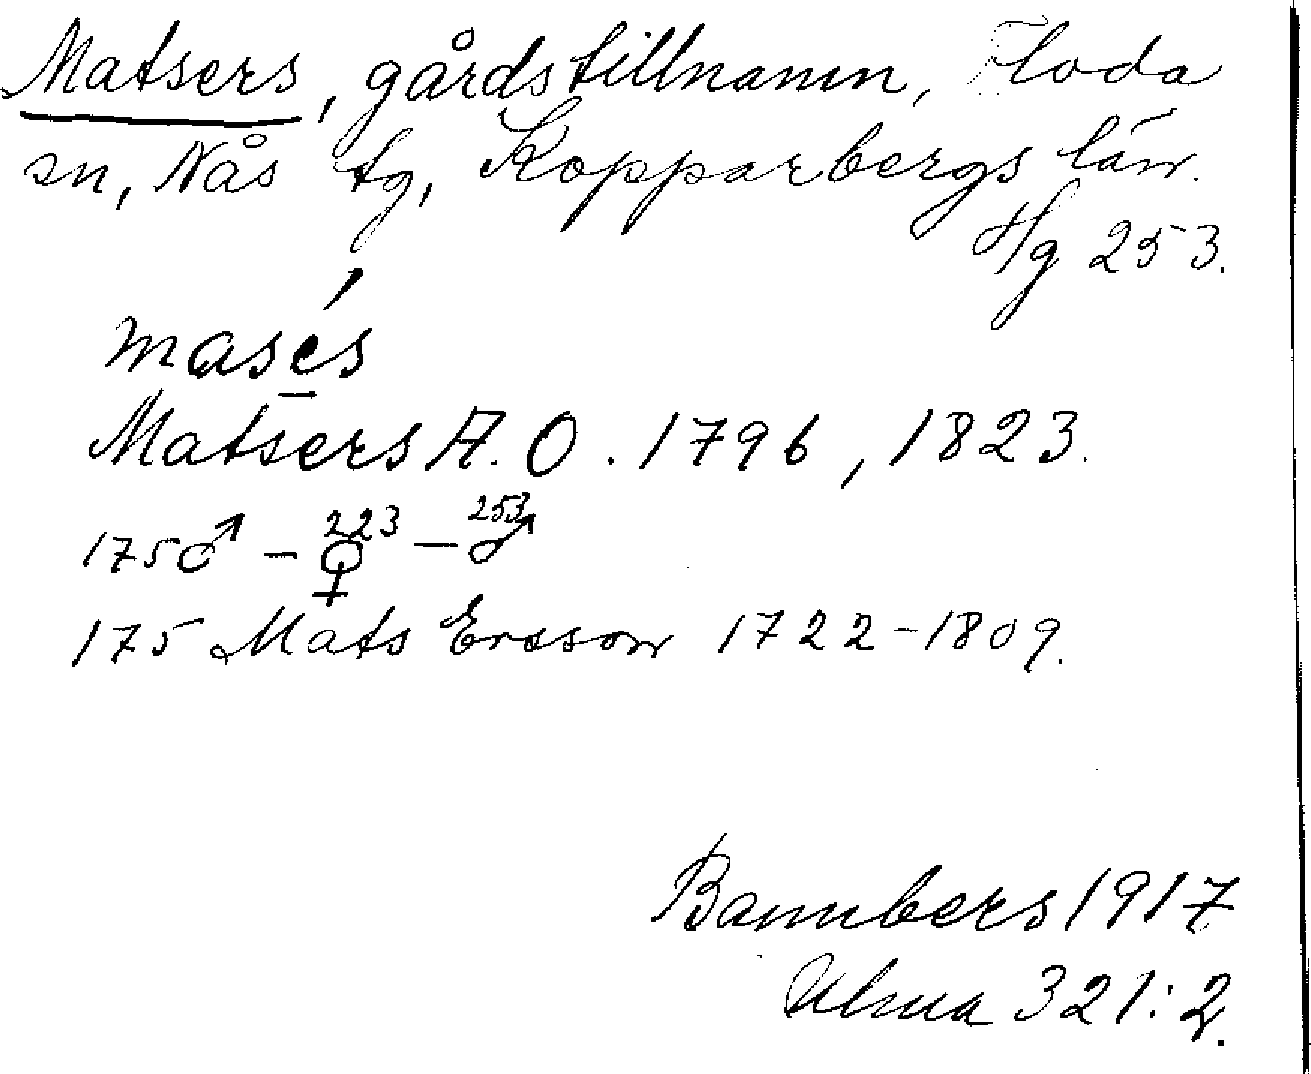 Matsers, gårdstillnamn, Floda
sn, Nås tg, Kopparbergs län.
Hg 253.
masé̱s
Matsers A. O. 1796, 1823.
175♂ – 223♀ – 253♂
175 Mats Ersson 1722–1809.
Bannbers 1917
Ulma 321:2.